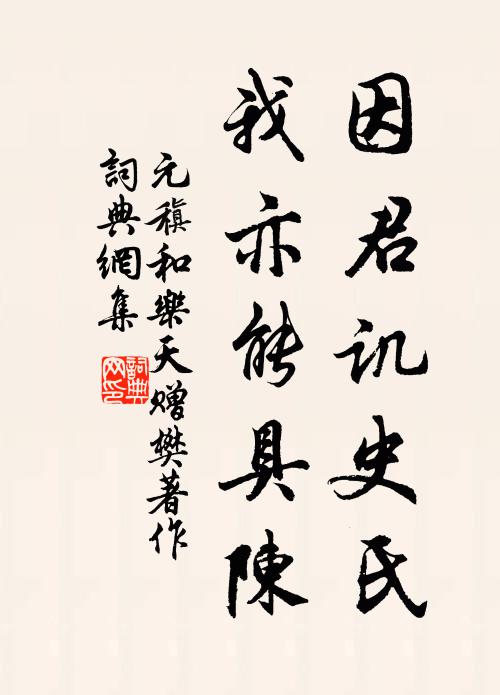 因君讥史氏
我亦能具陳
元稹和樂天贈樊著作
詞典網集
詞典网印